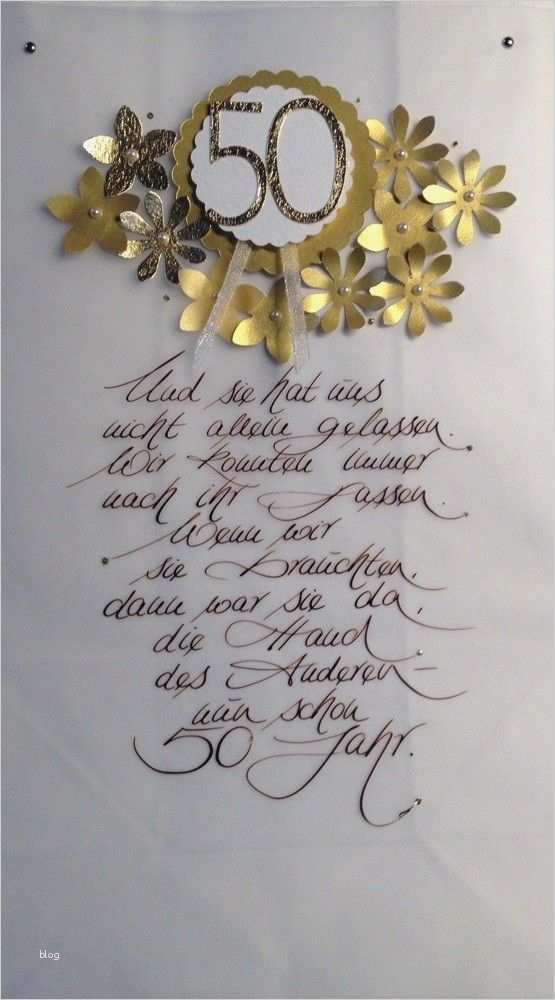 50
Und sie hat uns
nicht allein gelassen.
Wir konnten immer
nach ihr fassen.
Wenn wir
sie brauchten,
dann war sie da,
die Hand
des Anderen –
nun schon
50 Jahr.
blog